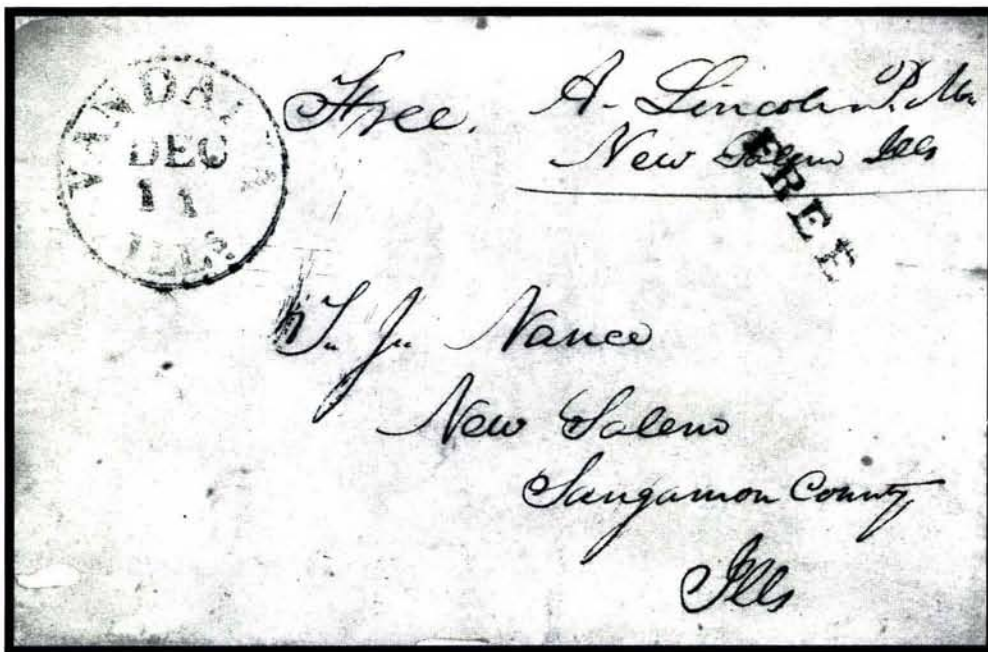 VANDALIA
DEC
11
ILLS.
Free. A. Lincoln P.M.
New Salem Ills
FREE
T. J. Nance
New Salem
Sangamon County
Ills